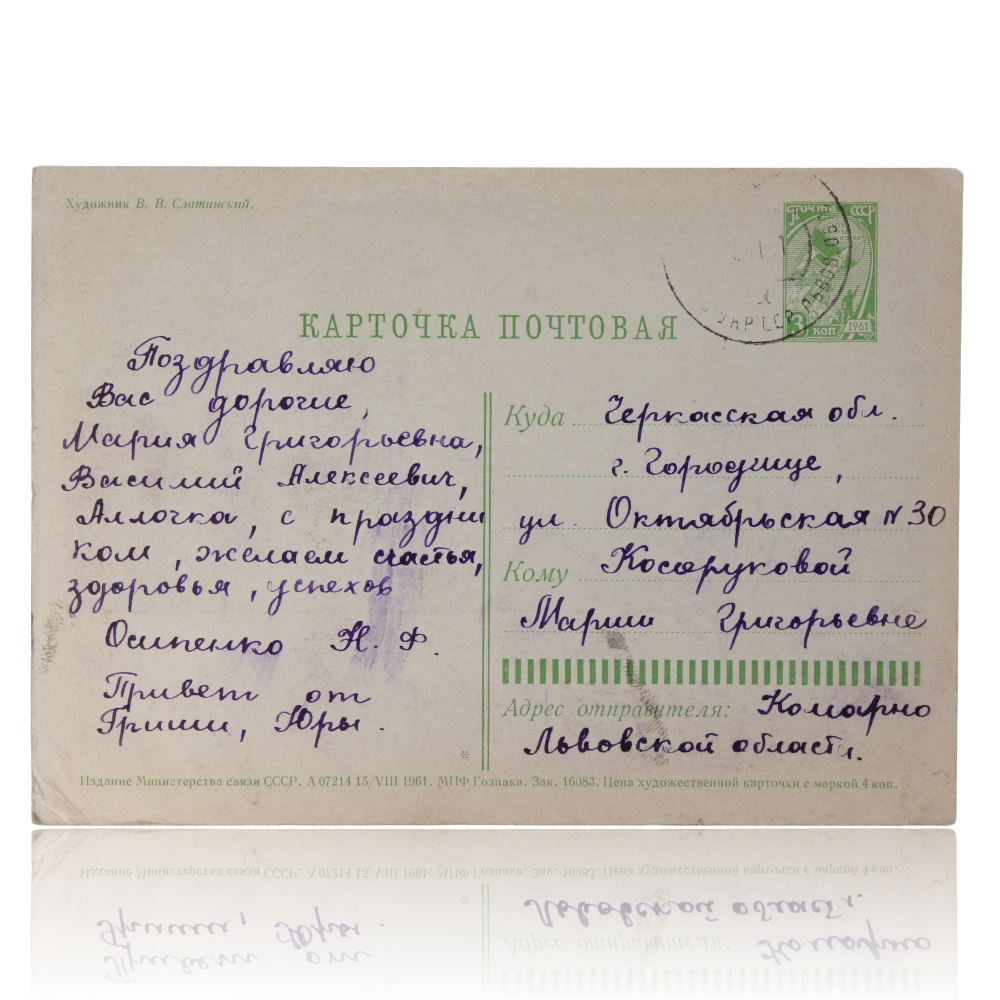 Художник В. В. Слатинский.
Почта СССР
3 коп
1961
УКР ССР ЛЬВОВ. ОБ
КАРТОЧКА ПОЧТОВАЯ
Поздравляю
Вас дорогие,
Мария Григорьевна,
Василий Алексеевич,
Аллочка, с праздни
ком, желаем счастья,
здоровья, успехов
Осипенко Н. Ф.
Привет от
Гриши, Юры.
Куда Черкасская обл.
г. Городище,
ул. Октябрьская N 30
Кому Косоруковой
Марии Григорьевне
Адрес отправителя: Комарно
Львовской области.
Издание Министерства связи СССР. А 07214 15/VIII 1961. МПФ Гознака. Зак. 16083. Цена художественной карточки с маркой 4 коп.